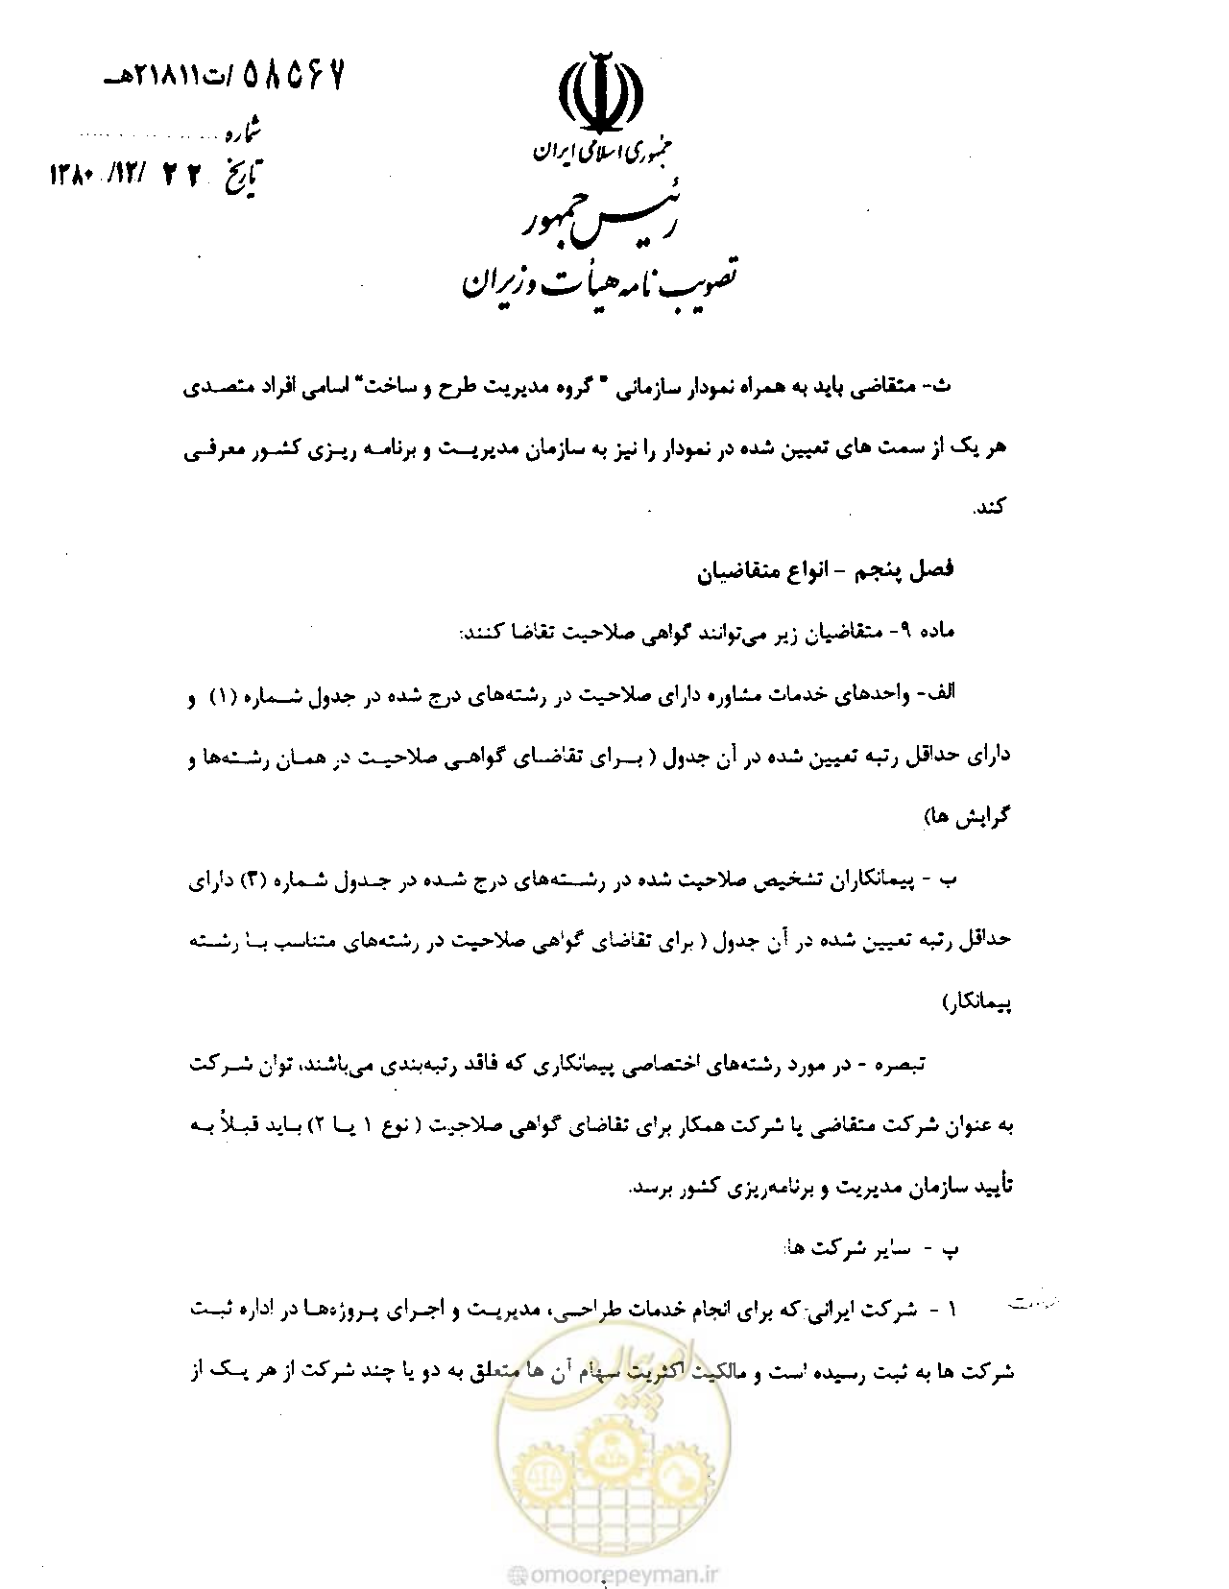 ۵۸۵۶۷/ت۲۱۸۱۱هـ
شماره
تاریخ ۲۲ /۱۲/ ۱۳۸۰
جمهوری اسلامی ایران
رئیس جمهور
تصویب نامه هیأت وزیران
ث- متقاضی باید به همراه نمودار سازمانی " گروه مدیریت طرح و ساخت" اسامی افراد متصدی
هر یک از سمت های تعیین شده در نمودار را نیز به سازمان مدیریت و برنامه ریزی کشور معرفی
کند.
فصل پنجم – انواع متقاضیان
ماده ۹- متقاضیان زیر می‌توانند گواهی صلاحیت تقاضا کنند:
الف- واحدهای خدمات مشاوره دارای صلاحیت در رشته‌های درج شده در جدول شماره (۱) و
دارای حداقل رتبه تعیین شده در آن جدول ( برای تقاضای گواهی صلاحیت در همان رشته‌ها و
گرایش ها)
ب - پیمانکاران تشخیص صلاحیت شده در رشته‌های درج شده در جدول شماره (۳) دارای
حداقل رتبه تعیین شده در آن جدول ( برای تقاضای گواهی صلاحیت در رشته‌های متناسب با رشته
پیمانکار)
تبصره - در مورد رشته‌های اختصاصی پیمانکاری که فاقد رتبه‌بندی می‌باشند، توان شرکت
به عنوان شرکت متقاضی یا شرکت همکار برای تقاضای گواهی صلاحیت ( نوع ۱ یا ۲) باید قبلاً به
تأیید سازمان مدیریت و برنامه‌ریزی کشور برسد.
پ - سایر شرکت ها:
۱ - شرکت ایرانی که برای انجام خدمات طراحی، مدیریت و اجرای پروژه‌ها در اداره ثبت
شرکت ها به ثبت رسیده است و مالکیت اکثریت سهام آن ها متعلق به دو یا چند شرکت از هر یک از
امور پیمان
@omoorepeyman.ir